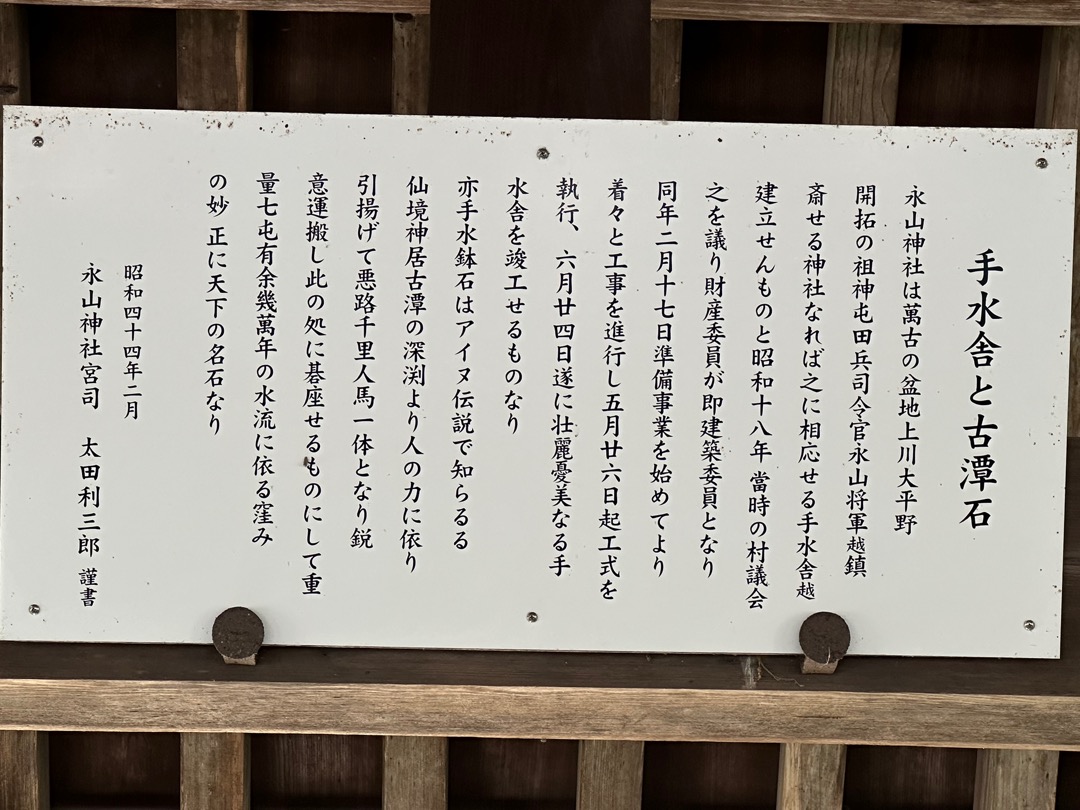 手水舎と古潭石
永山神社は萬古の盆地上川大平野
開拓の祖神屯田兵司令官永山将軍越鎮
斎せる神社なれば之に相応せる手水舎越
建立せんものと昭和十八年 當時の村議会
之を議り財産委員が即建築委員となり
同年二月十七日準備事業を始めてより
着々と工事を進行し五月廿六日起工式を
執行、六月廿四日遂に壮麗憂美なる手
水舎を竣工せるものなり
亦手水鉢石はアイヌ伝説で知らるる
仙境神居古潭の深渕より人の力に依り
引揚げて悪路千里人馬一体となり鋭
意運搬し此の処に碁座せるものにして重
量七屯有余幾萬年の水流に依る窪み
の妙 正に天下の名石なり
昭和四十四年二月
永山神社宮司 太田利三郎 謹書